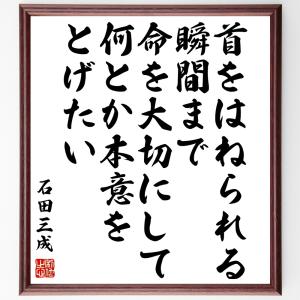 首をはねられる
瞬間まで
命を大切にして
何とか本意を
とげたい
石田三成